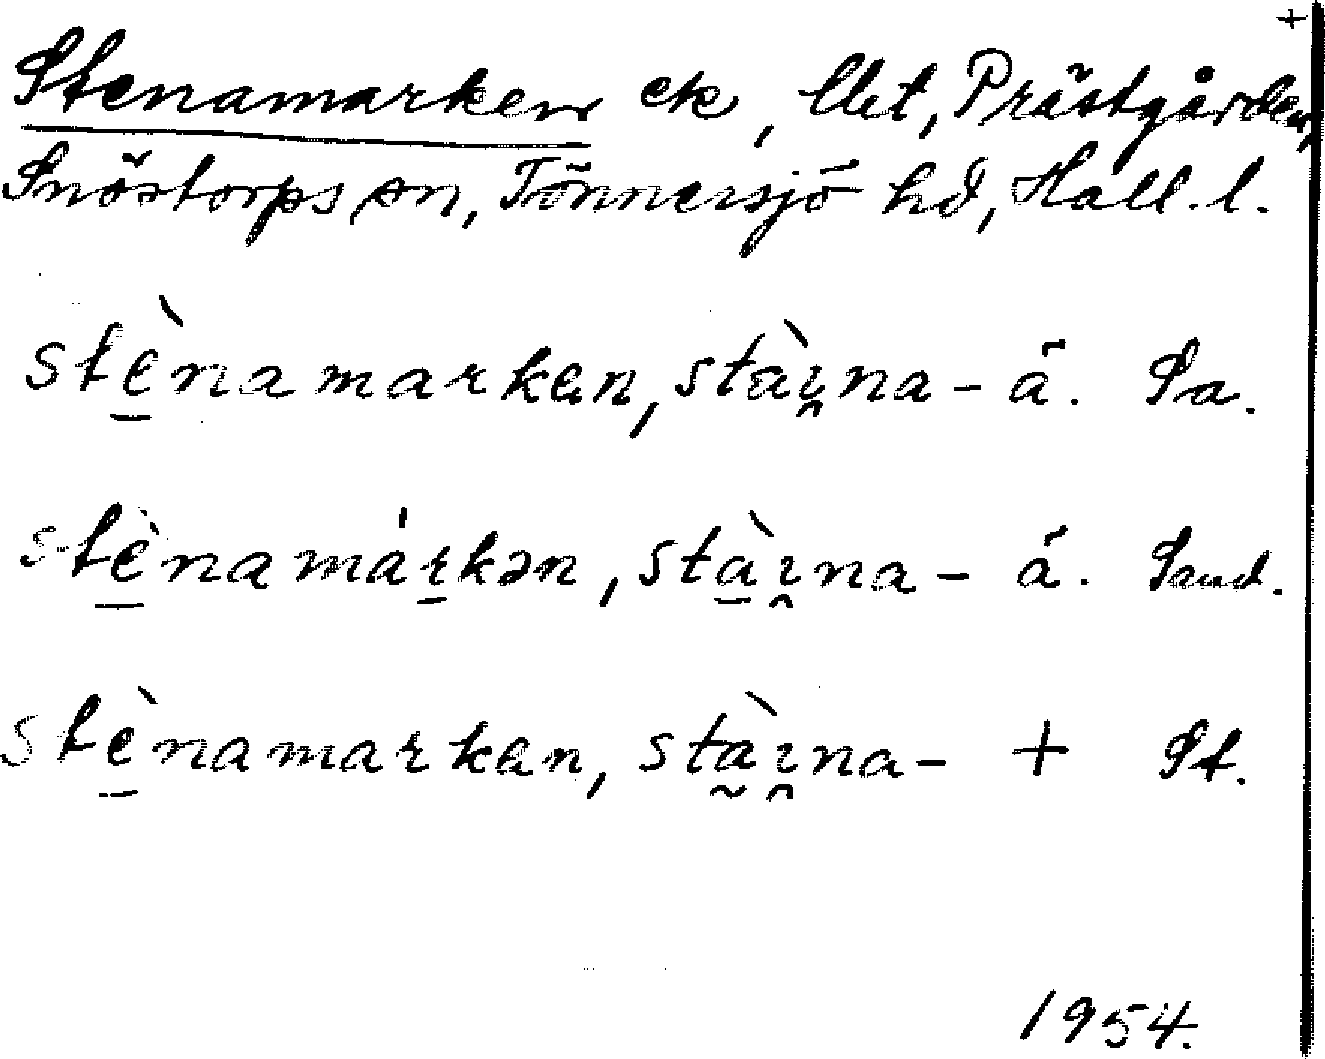 +
Stenamarken ek, Utet, Prästgården,
Snöstorps sn, Tönnersjö hd, Hall. l.
stè̲namarken, stàı̯na- ä. Sa.
stè̲namár̲kən, stà̲ı̯na- ä. Sand.
stè̲namarken, stà̰ı̯na- + St.
1954.